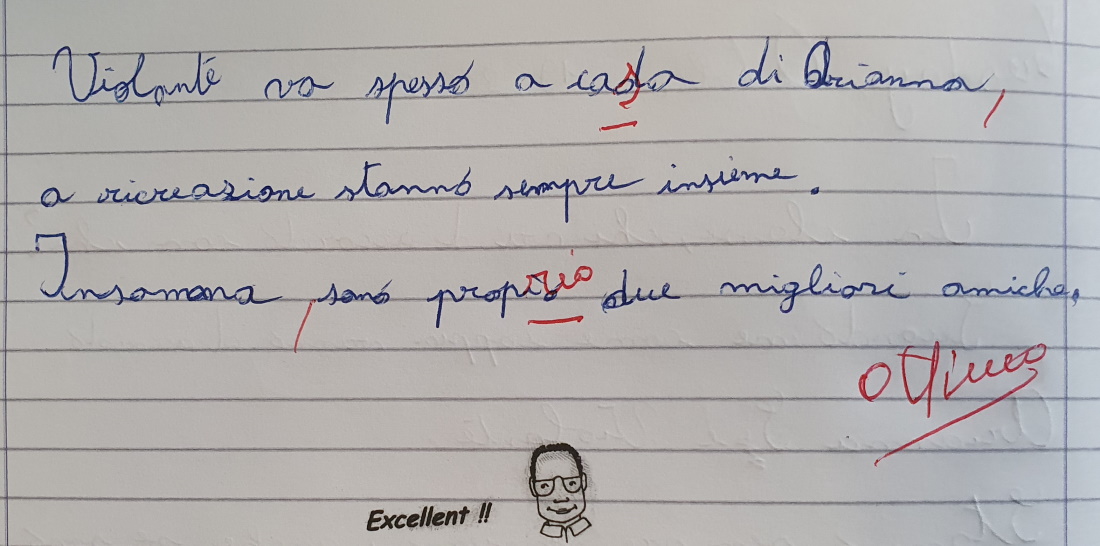 Violante va spesso a casa di Arianna,
a ricreazione stanno sempre insieme.
Insomma, sono proprio due migliori amiche.
ottimo
Excellent !!